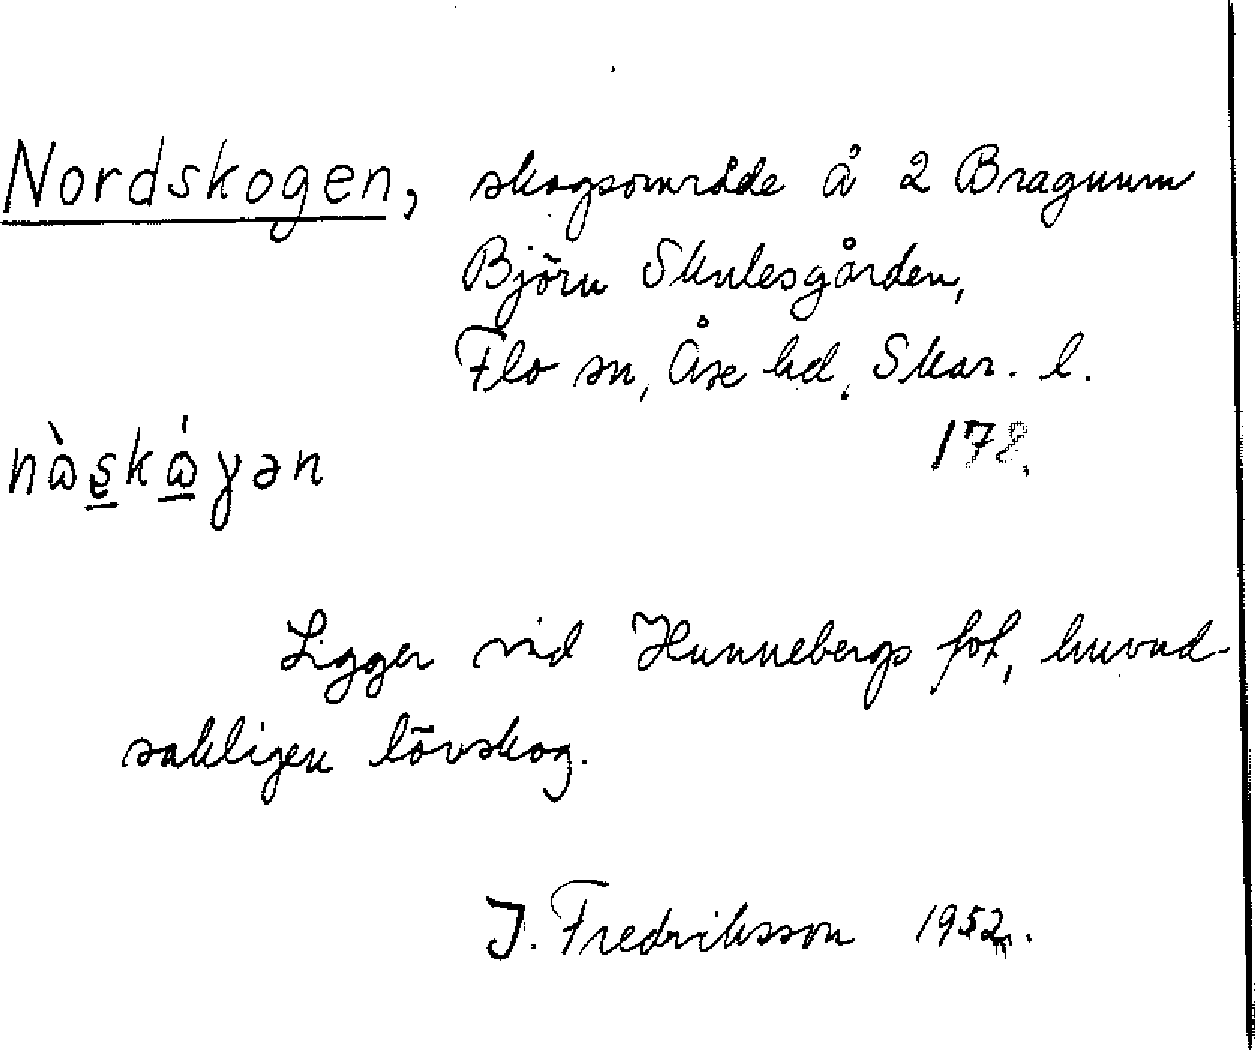 Nordskogen, skogsområde å 2 Bragnum
Björn Skulesgården,
Flo sn, Åse hd, Skar. l.
178.
nɷ̀s̠kɷ̠́γən
Ligger vid Hunnebergs fot, huvud-
sakligen lövskog.
J. Fredriksson 1952.